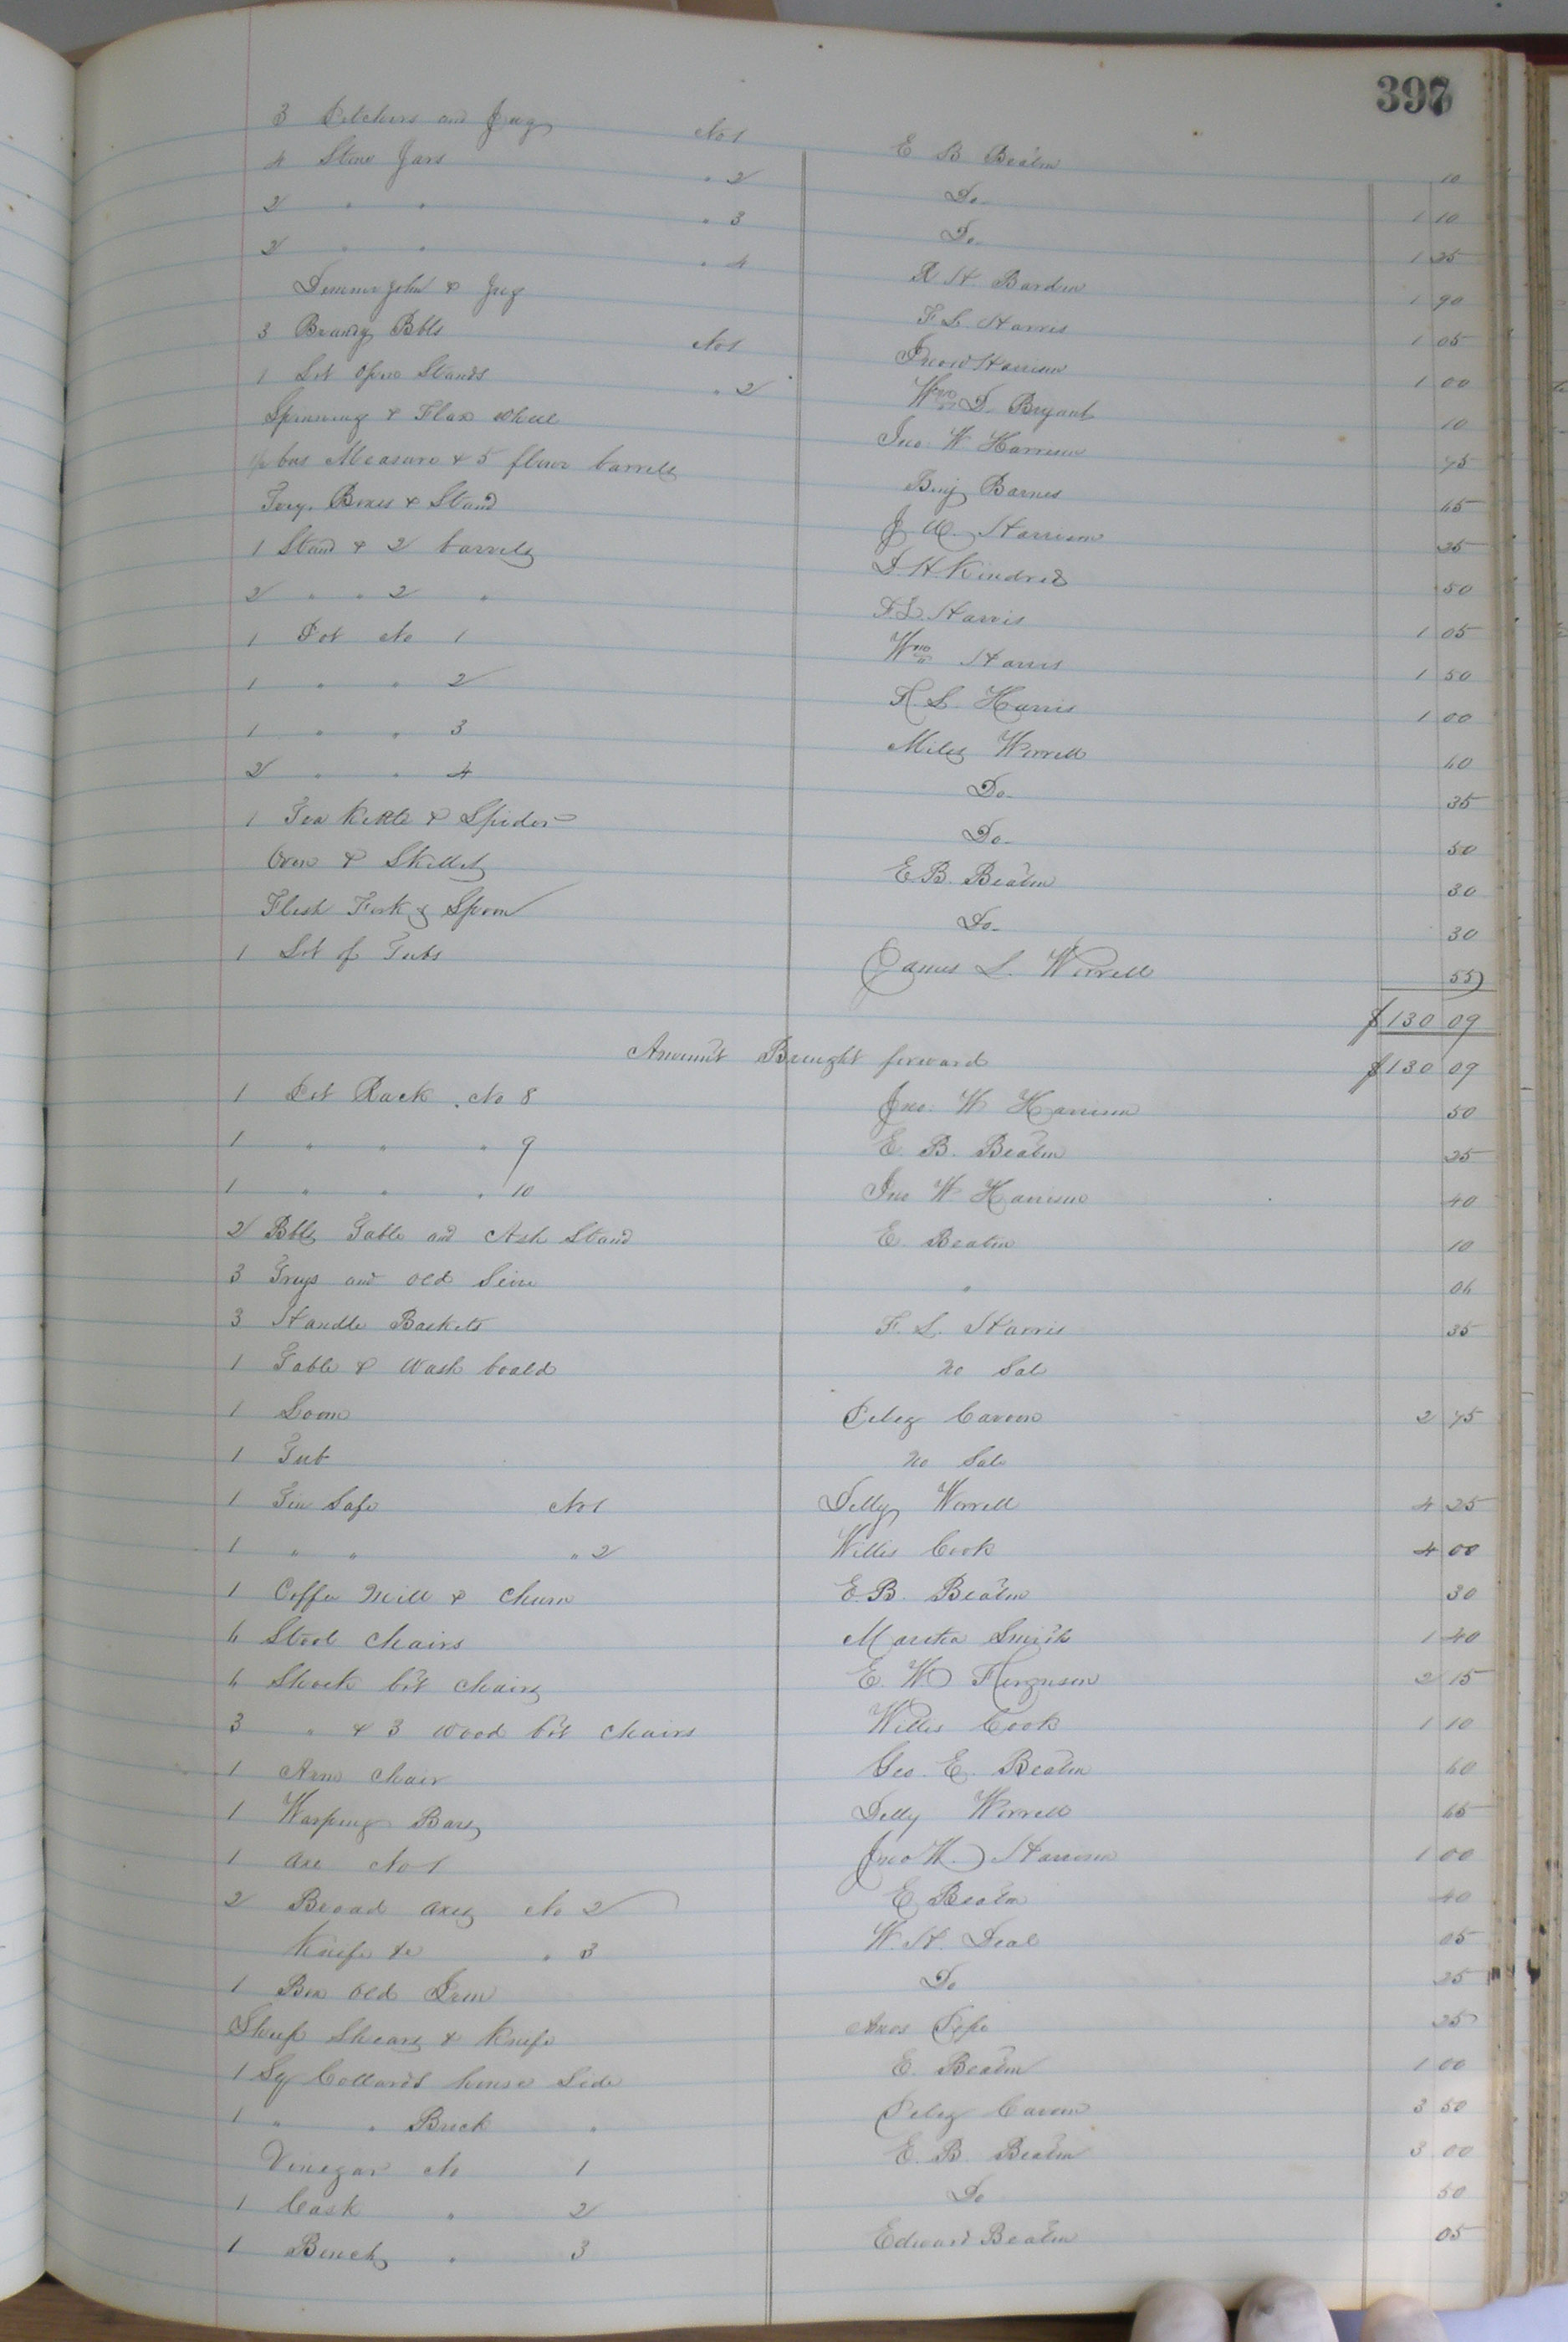 397
3 Pitchers and Jug No 1 E B Beaton 10
4 Stone Jars " 2 Do 1 10
2 " " " 3 Do 1 25
2 " " " 4 R H. Barden 1 90
Demmejohn & Jug F L. Harris 1 05
3 Brandy Bbls No 1 Harrison 1 00
1 Lot open Stands " 2 Wm D. Bryant 10
Spinning & Flax wheel Jno. W Harrison 75
bus Measure & 5 flour barrels Benj Barnes
Boxes & Stand J W. Harrison 25
1 Stand & 2 barrels D. H. Kindred 50
2 " " 2 " F. L. Harris 1 05
1 Pot No 1 Wm Harris 1 50
1 " " 2 F. L. Harris 1 00
1 " " 3 Miles Worrell 60
2 " " 4 Do 35
1 Tea Kettle & Spider Do 50
Oven & Skillet E. B. Beaton 30
Flesh Fork & Spoon Do 30
1 Lot of Tubs James L. Worrell 55
$130 09
Amount Brought forward $130 09
1 Pot Rack No 8 Jno. W Harrison 50
1 " " " 9 E. B. Beaton 25
1 " " " 10 Jno W Harrison 40
2 Bbls Table and Ash Stand E. Beaton 10
3 Trays and old "
3 Handle Baskets F. L. Harris 35
1 Table & Wash boald no Sale
1 Loom Peleg 2 75
1 Tub no Sale
1 Tin Safe No 1 Worrell 4 25
1 " " " 2 Willis Cook 4 00
1 Coffee Mill & Churn E. B. Beaton 30
6 Stool Chairs Martha Smith 1 40
6 Shuck bot Chairs E. W. Ferguson 2 15
3 " & 3 wood bot Chairs Willis Cook 1 10
1 Arm Chair Geo. E. Beaton 60
1 Warping Bars Worrell
1 Axe No 1 Jno W. Harrison 1 00
2 Broad Axes No 2 E Beaton 40
Knife &c " 3 W. H. Deal 05
1 Box Old Iron Do 25
Sheep Shears & Knife Amos Pope 25
1 Sq Collards house Side E. Beaton 1 00
1 " " Back " Peleg 3 50
Vinegar No 1 E. B. Beaton 3 00
1 Cask " 2 Do 50
1 Bench " 3 Edward Beaton 05